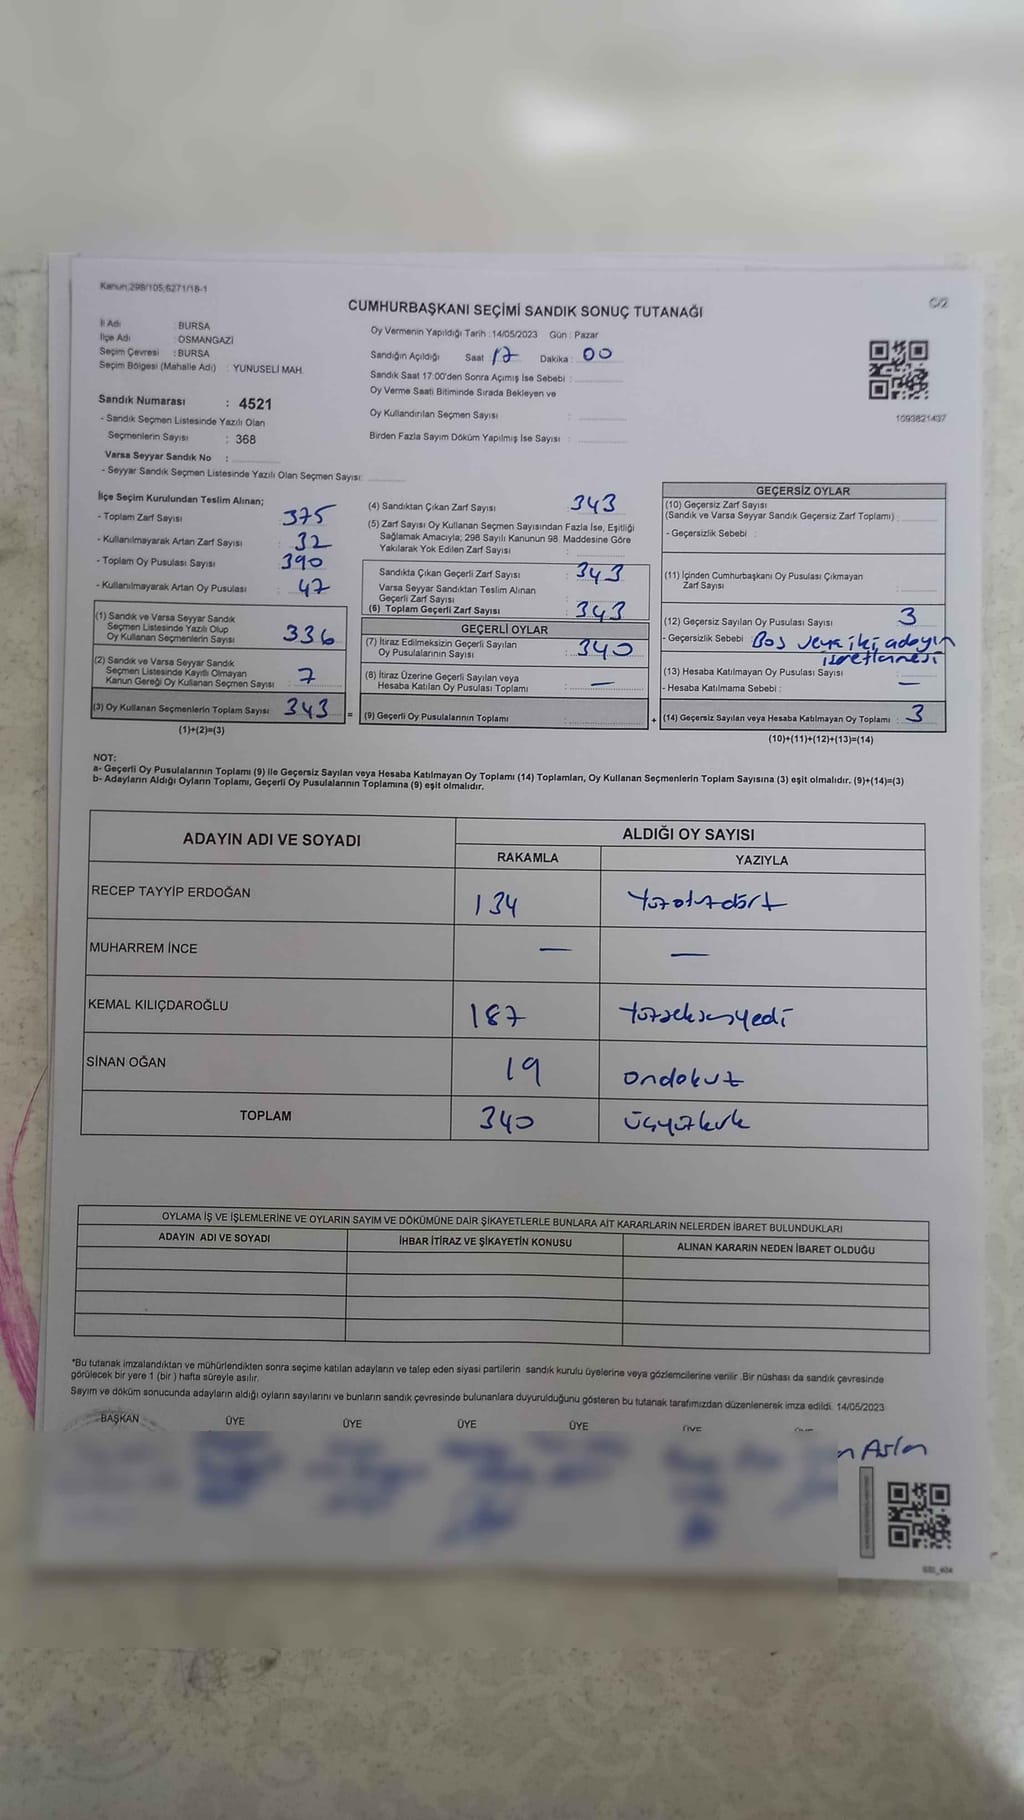 Kanun:298/105;6271/18-1
C/2
CUMHURBAŞKANI SEÇİMİ SANDIK SONUÇ TUTANAĞI
İl Adı : BURSA
İlçe Adı : OSMANGAZİ
Seçim Çevresi : BURSA
Seçim Bölgesi (Mahalle Adı) : YUNUSELİ MAH.
Sandık Numarası : 4521
- Sandık Seçmen Listesinde Yazılı Olan
Seçmenlerin Sayısı : 368
Varsa Seyyar Sandık No :
- Seyyar Sandık Seçmen Listesinde Yazılı Olan Seçmen Sayısı:
Oy Vermenin Yapıldığı Tarih :14/05/2023 Gün : Pazar
Sandığın Açıldığı Saat 17 Dakika : 00
Sandık Saat 17:00'den Sonra Açımış İse Sebebi :
Oy Verme Saati Bitiminde Sırada Bekleyen ve
Oy Kullandırılan Seçmen Sayısı :
Birden Fazla Sayım Döküm Yapılmış İse Sayısı :
1093821437
İlçe Seçim Kurulundan Teslim Alınan;
- Toplam Zarf Sayısı : 375
- Kullanılmayarak Artan Zarf Sayısı : 32
- Toplam Oy Pusulası Sayısı : 390
- Kullanılmayarak Artan Oy Pusulası : 47
(1) Sandık ve Varsa Seyyar Sandık
Seçmen Listesinde Yazılı Olup
Oy Kullanan Seçmenlerin Sayısı : 336
(2) Sandık ve Varsa Seyyar Sandık
Seçmen Listesinde Kayıtlı Olmayan
Kanun Gereği Oy Kullanan Seçmen Sayısı : 7
(3) Oy Kullanan Seçmenlerin Toplam Sayısı : 343 =
(1)+(2)=(3)
(4) Sandıktan Çıkan Zarf Sayısı : 343
(5) Zarf Sayısı Oy Kullanan Seçmen Sayısından Fazla İse, Eşitliği
Sağlamak Amacıyla; 298 Sayılı Kanunun 98. Maddesine Göre
Yakılarak Yok Edilen Zarf Sayısı :
Sandıkta Çıkan Geçerli Zarf Sayısı : 343
Varsa Seyyar Sandıktan Teslim Alınan
Geçerli Zarf Sayısı :
(6) Toplam Geçerli Zarf Sayısı : 343
GEÇERLİ OYLAR
(7) İtiraz Edilmeksizin Geçerli Sayılan
Oy Pusulalarının Sayısı : 340
(8) İtiraz Üzerine Geçerli Sayılan veya
Hesaba Katılan Oy Pusulası Toplamı : —
(9) Geçerli Oy Pusulalarının Toplamı : +
GEÇERSİZ OYLAR
(10) Geçersiz Zarf Sayısı
(Sandık ve Varsa Seyyar Sandık Geçersiz Zarf Toplamı) :
- Geçersizlik Sebebi :
(11) İçinden Cumhurbaşkanı Oy Pusulası Çıkmayan
Zarf Sayısı :
(12) Geçersiz Sayılan Oy Pusulası Sayısı : 3
- Geçersizlik Sebebi : Boş veya iki adayın
işretlemesi
(13) Hesaba Katılmayan Oy Pusulası Sayısı : —
- Hesaba Katılmama Sebebi :
(14) Geçersiz Sayılan veya Hesaba Katılmayan Oy Toplamı : 3
(10)+(11)+(12)+(13)=(14)
NOT:
a- Geçerli Oy Pusulalarının Toplamı (9) ile Geçersiz Sayılan veya Hesaba Katılmayan Oy Toplamı (14) Toplamları, Oy Kullanan Seçmenlerin Toplam Sayısına (3) eşit olmalıdır. (9)+(14)=(3)
b- Adayların Aldığı Oyların Toplamı, Geçerli Oy Pusulalarının Toplamına (9) eşit olmalıdır.
ADAYIN ADI VE SOYADI
ALDIĞI OY SAYISI
RAKAMLA YAZIYLA
RECEP TAYYİP ERDOĞAN 134 Yüzotuzdört
MUHARREM İNCE — —
KEMAL KILIÇDAROĞLU 187 Yüzseksenyedi
SİNAN OĞAN 19 ondokuz
TOPLAM 340 üçyüzkırk
OYLAMA İŞ VE İŞLEMLERİNE VE OYLARIN SAYIM VE DÖKÜMÜNE DAİR ŞİKAYETLERLE BUNLARA AİT KARARLARIN NELERDEN İBARET BULUNDUKLARI
ADAYIN ADI VE SOYADI İHBAR İTİRAZ VE ŞİKAYETİN KONUSU ALINAN KARARIN NEDEN İBARET OLDUĞU
*Bu tutanak imzalandıktan ve mühürlendikten sonra seçime katılan adayların ve talep eden siyasi partilerin sandık kurulu üyelerine veya gözlemcilerine verilir .Bir nüshası da sandık çevresinde
görülecek bir yere 1 (bir ) hafta süreyle asılır.
Sayım ve döküm sonucunda adayların aldığı oyların sayılarını ve bunların sandık çevresinde bulunanlara duyurulduğunu gösteren bu tutanak tarafımızdan düzenlenerek imza edildi. 14/05/2023
BAŞKAN ÜYE ÜYE ÜYE ÜYE ÜYE ÜYE
n Aslan